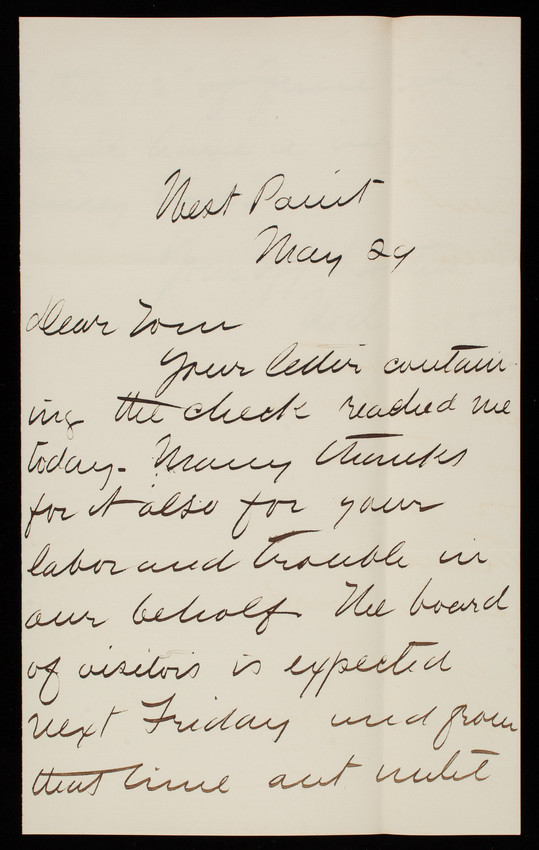 West Point
May 29
Dear Tom
Your letter contain
ing the check reached me
today. Many thanks
for it also for your
labor and trouble in
our behalf. The board
of visitors is expected
next Friday and from
that time out until